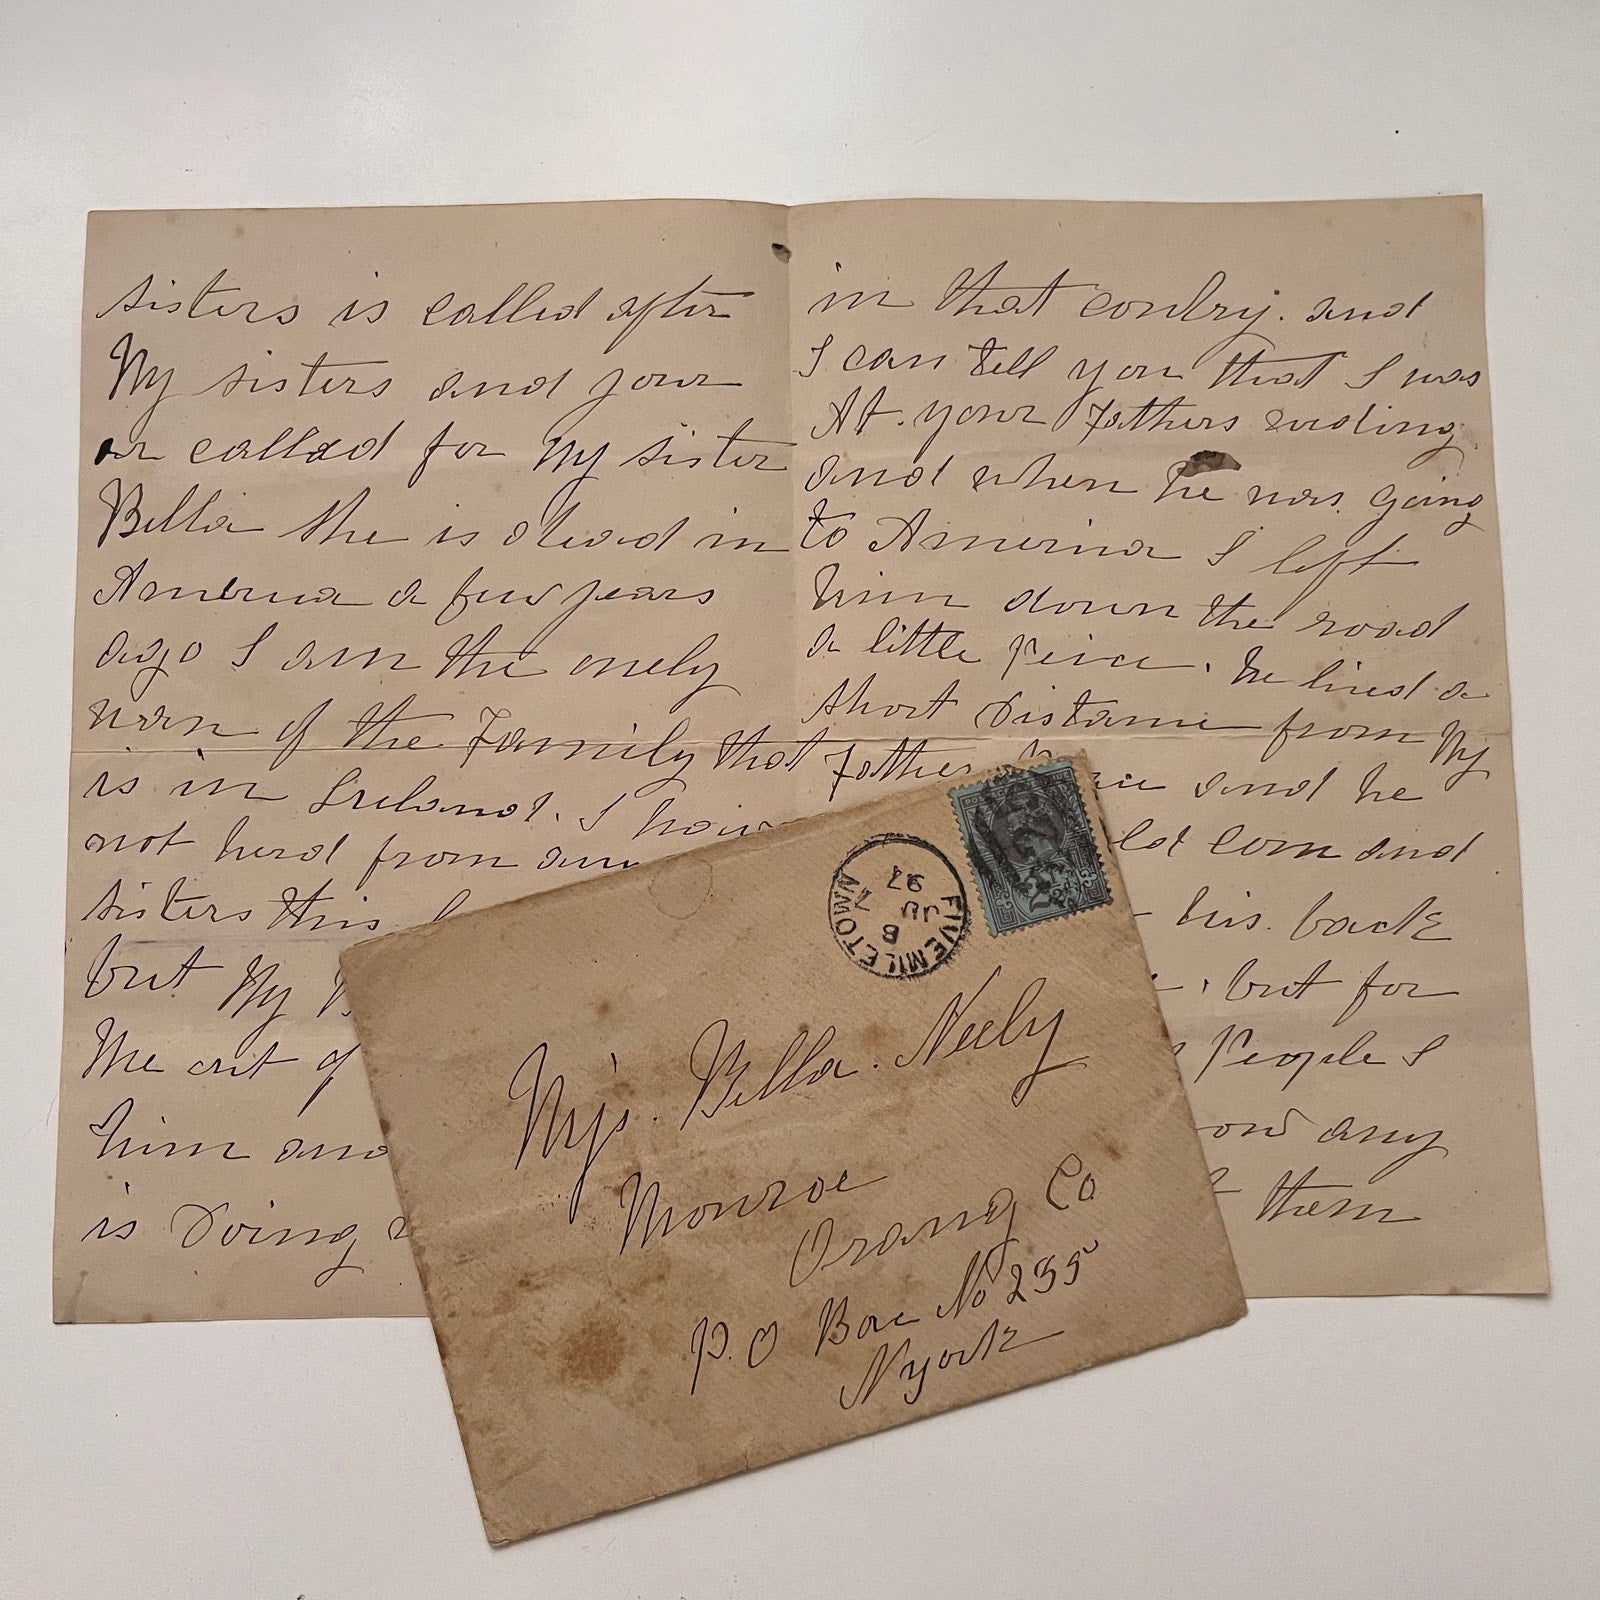 sisters is called after
My sisters and your
or called for My sister
Bella the is dead in
America a few years
ago I am the onely
wan of the Family that
is in Ireland. I have
not herd from
sisters this
but My
Me out of
him and
is Doing
in that contry. and
I can tell you that I was
At. your Fathers wading
and when he was going
to America I left
him down the road
a little peice. he lived a
short Distance from My
Father and he
com and
his. back
but for
People I
any
them
FIVEMILETOWN
A
JU 8
97
Mrs. Bella. Neely
Monroe
Orang Co
P.O Box No 235
Nyork